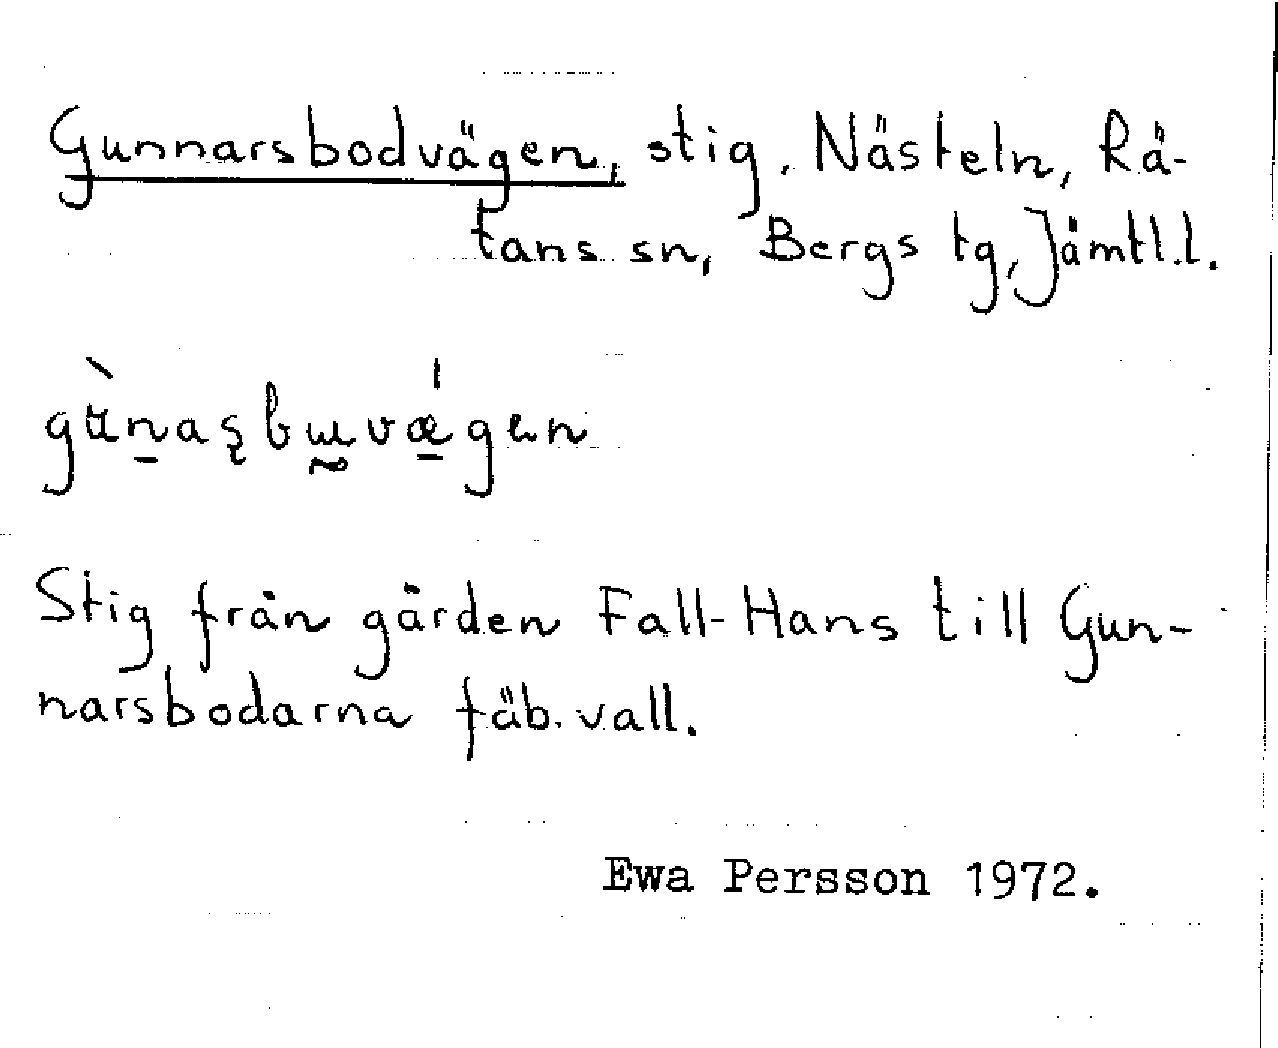 Gunnarsbodvägen, stig. Nästeln, Rä-
tans sn, Bergs tg, Jämtl.l.
Stig från gården Fall-Hans till Gun-
narsbodarna fäb.vall.
Ewa Persson 1972.